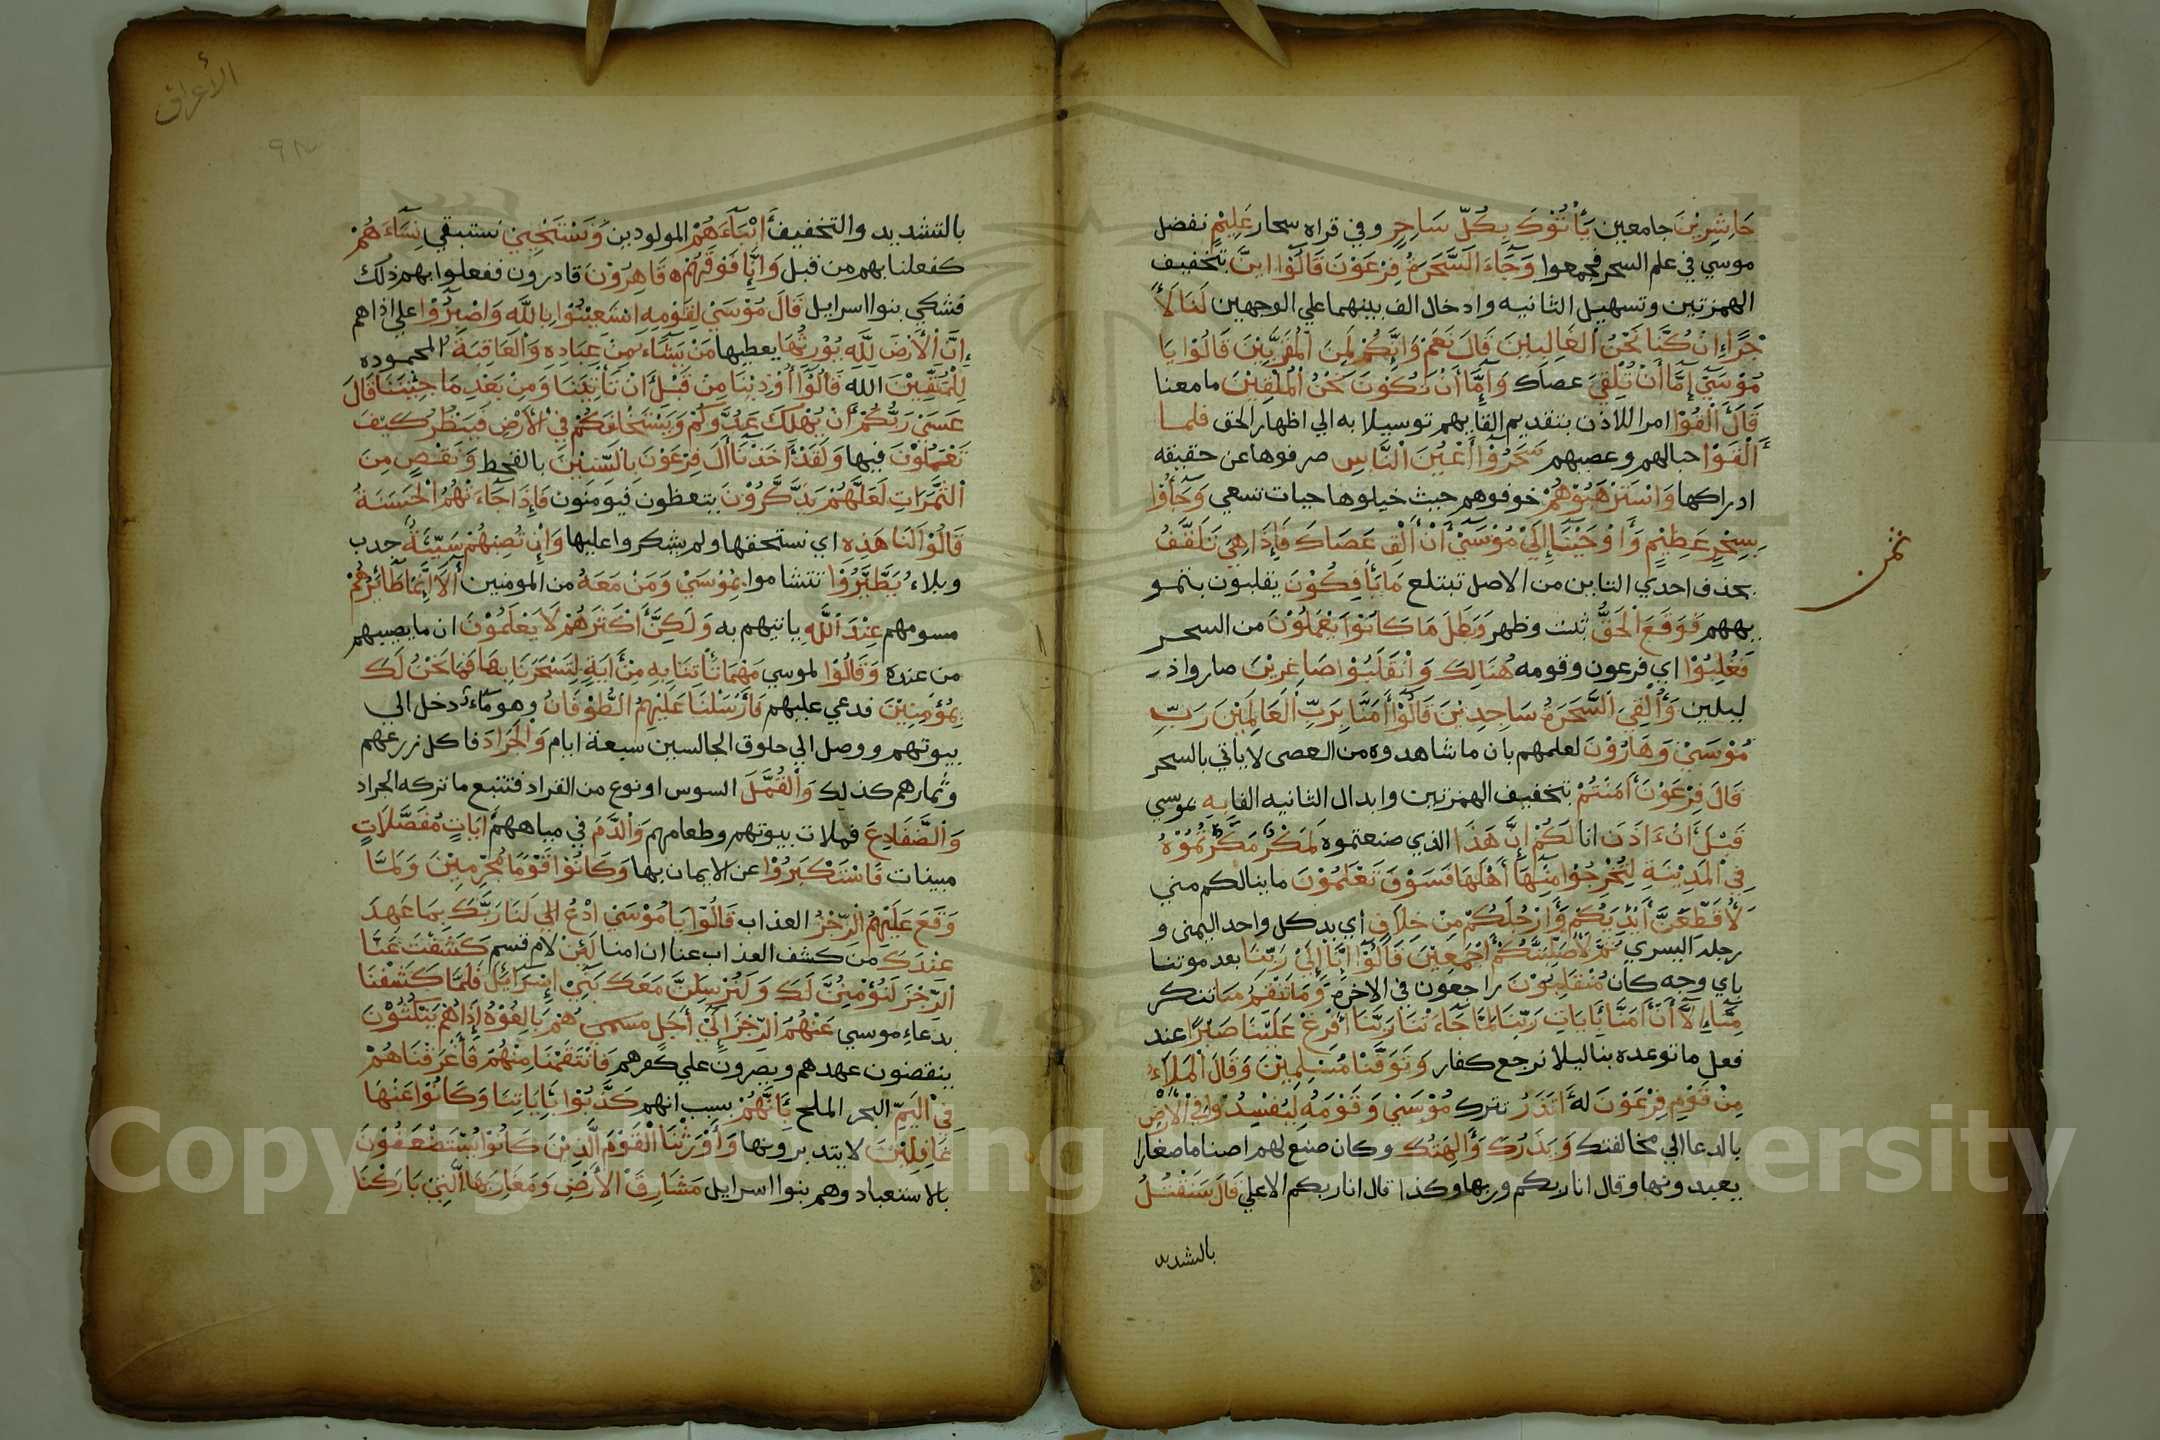 حَاشِرِيْنَ جامعين يَأْتُوْكَ بِكُلِّ سَاحِرٍ وفي قراه سحار عَلِيْمٍ نفضل
موسي في علم السحر فجمعوا وَجَآءَ السَّحَرَةُ فِرْعَوْنَ قَالُوْا اِنَّ بتخفيف
الهمزتين وتسهيل الثانيه وادخال الف بينهما علي الوجهين لَنَا لَأَ
جْرًا اِنْ كُنَّا نَحْنُ الْغَالِبِيْنَ قَالَ نَعَمْ وَاِنَّكُمْ لَمِنَ الْمُقَرَّبِيْنَ قَالُوْا يَا
مُوْسَيْ اِمَّا أَنْ تُلْقِيَ عصاك وَاِمَّا أَنْ نَكُوْنَ نَحْنُ الْمُلْقِيْنَ مامعنا
قَالَ أَلْقُوْا امر اللاذن بتقديم القايهم توسيلا به الي اظهار الحق فلمــا
أَلْقَوْا حبالهم وعصيهم سَحَرُوْا أَعْيُنَ النَّاسِ صرفوها عن حقيقه
ادراكها وَاسْتَرْهَبُوْهُمْ خوفوهم حيث خيلوها حيات تسعي وَجَآءُوْا
بِسِحْرٍ عَظِيْمٍ وَأَوْحَيْنَا إِلَيْ مُوْسَيْ أَنْ أَلْقِ عَصَاكَ فَإِذَا هِيَ تَلَقَّفُ
بحذف احدي التاين من الاصل تبتلع مَا يَأْفِكُوْنَ يقلبون بتمو
يههم فَوَقَعَ الْحَقُّ ثبت وظهر وَبَطَلَ مَا كَانُوْا يَعْمَلُوْنَ من السحر
فَغُلِبُوْا اي فرعون وقومه هُنَالِكَ وَانْقَلَبُوْا صَاغِرِيْنَ صاروا ذ
ليلين وَأُلْقِيَ السَّحَرَةُ سَاجِدِيْنَ قَالُوْا آمَنَّا بِرَبِّ الْعَالَمِيْنَ رَبِّ
مُوْسَيْ وَهَارُوْنَ لعلمهم بان ماشاهدوه من العصى لا يأتي بالسحر
قَالَ فِرْعَوْنُ أَمَنْتُمْ بتخفيف الهمزتين وابدال الثانيه الفا بِهِ بموسي
قَبْلَ أَنْ ءَاذَنَ انا لَكُمْ إِنَّ هَذَا الذي صنعتموه لَمَكْرٌ مَكَرْتُمُوْهُ
فِي الْمَدِيْنَةِ لِتُخْرِجُوْا مِنْهَا أَهْلَهَا فَسَوْفَ تَعْلَمُوْنَ ماينالكم مني
لَأُقَطِّعَنَّ أَيْدِيَكُمْ وَأَرْجُلَكُمْ مِنْ خِلَافٍ اي يد كل واحد اليمنى و
رجله اليسري ثُمَّ لَأُصَلِّبَنَّكُمْ أَجْمَعِيْنَ قَالُوْا إِنَّا إِلَيْ رَبِّنَا بعد موتنا
باي وجه كان مُنْقَلِبُوْنَ راجعون في الاخرة وَمَا تَنْقِمُ مِنَّا تنكر
مِنَّا إِلَّا أَنْ أَمَنَّا بِأَيَاتِ رَبِّنَا لَمَّا جَآءَتْنَا رَبَّنَا أَفْرِغْ عَلَيْنَا صَبْرًا عند
فعل ما توعده بنا ليلا نرجع كفار وَتَوَفَّنَا مُسْلِمِيْنَ وَقَالَ الْمَلَاءُ
مِنْ قَوْمِ فِرْعَوْنَ لهَ أَتَذَرُ تترك مُوْسَيْ وَقَوْمَهُ لِيُفْسِدُوْا فِي الْأَرْضِ
بالدعا الي مخالفتك وَيَذَرَكَ وَأَلِهَتَكَ وكان صنع لهم اصناما صغارا
يعبدونها وقال انا ربكم وربها وكذا قال انا ربكم الاعلي قَالَ سَنُقَتِّلُ
بالشديد
ثمن
الأعراف
٩٢
بالتشديد والتخفيف أَبْنَآءَهُمْ المولودين وَنَسْتَحْيِيْ نستبقي نِسَآءَهُمْ
كفعلنا بهم من قبل وَإِنَّا فَوْقَهُمْ قَاهِرُوْنَ قادرون ففعلوا بهم ذلك
فشكي بنوا اسرايل قَالَ مُوْسَيْ لِقَوْمِهِ اسْتَعِيْنُوْا بِاللَّهِ وَاصْبِرُوْا علي اذاهم
إِنَّ الْأَرْضَ لِلَّهِ يُوْرِثُهَا يعطيها مَنْ يَشَآءُ مِنْ عِبَادِهِ وَالْعَاقِبَةُ المحموده
لِلْمُتَّقِيْنَ الله قَالُوْا أُوْذِيْنَا مِنْ قَبْلِ أَنْ تَأْتِيَنَا وَمِنْ بَعْدِ مَا جِئْتَنَا قَالَ
عَسَيْ رَبُّكُمْ أَنْ يُهْلِكَ عَدُوَّكُمْ وَيَسْتَخْلِفَكُمْ فِي الْأَرْضِ فَيَنْظُرَ كَيْفَ
تَعْمَلُوْنَ فيها وَلَقَدْ أَخَذْنَا أَلَ فِرْعَوْنَ بِالسِّنِيْنَ بالقحط وَنَقْصٍ مِنَ
الثَّمَرَاتِ لَعَلَّهُمْ يَذَّكَّرُوْنَ يتعظون فيومنون فَإِذَا جَآءَتْهُمُ الْحَسَنَةُ
قَالُوْا لَنَا هَذِهِ اي نستحقها ولم يشكروا عليها وَإِنْ تُصِبْهُمْ سَيِّئَةٌ جدب
وبلاء يَطَّيَّرُوْا يتشاموا بِمُوْسَيْ وَمَنْ مَعَهُ من المومنين أَلَا إِنَّمَا طَآئِرُهُمْ
مسومهم عِنْدَ اللَّهِ ياتيهم به وَلَكِنَّ أَكْثَرَهُمْ لَا يَعْلَمُوْنَ ان مايصيبهم
من عنده وَقَالُوْا لموسي مَهْمَا تَأْتِنَا بِهِ مِنْ أَيَةٍ لِتَسْحَرَنَا بِهَا فَمَا نَحْنُ لَكَ
بِمُؤْمِنِيْنَ فدعي عليهم فَأَرْسَلْنَا عَلَيْهِمُ الطُّوْفَانَ وهو ماء دخل الي
بيوتهم ووصل الي حلوق الجالسين سبعة ايام وَالْجَرَادَ فاكل زرعهم
وثمارهم كذلك وَالْقُمَّلَ السوس او نوع من القراد فتتبع ماتركه الجراد
وَالضَّفَادِعَ فملات بيوتهم وطعامهم وَالدَّمَ في مياههم أَيَاتٍ مُفَصَّلَاتٍ
مبينات فَاسْتَكْبَرُوْا عن الايمان بها وَكَانُوْا قَوْمًا مُجْرِمِيْنَ وَلَمَّا
وَقَعَ عَلَيْهِمُ الرِّجْزُ العذاب قَالُوْا يَا مُوْسَيْ ادْعُ الي لَنَا رَبَّكَ بِمَا عَهِدَ
عِنْدَكَ من كشف العذاب عنا ان امنا لَئِنْ لام قسم كَشَفْتَ عَنَّا
الرِّجْزَ لَنُؤْمِنُنَّ لَكَ وَلَنُرْسِلَنَّ مَعَكَ بَنِيْ إِسْرَآئِيْلَ فَلَمَّا كَشَفْنَا
بدعاء موسي عَنْهُمُ الرِّجْزَ إِلَيْ أَجَلٍ مسمي هُمْ بَالِغُوْهُ إِذَا هُمْ يَنْكُثُوْنَ
ينقضون عهدهم ويصرون علي كفرهم فَانْتَقَمْنَا مِنْهُمْ فَأَغْرَقْنَاهُمْ
فِي الْيَمِّ البحر الملح بِأَنَّهُمْ بسبب انهم كَذَّبُوْا بِأَيَاتِنَا وَكَانُوْا عَنْهَا
غَافِلِيْنَ لايتدبرونها وَأَوْرَثْنَا الْقَوْمَ الَّذِيْنَ كَانُوْا يُسْتَضْعَفُوْنَ
بالاستعباد وهم بنوا اسرايل مَشَارِقَ الْأَرْضِ وَمَغَارِبَهَا الَّتِيْ بَارَكْنَا
Copyright © King Saud University